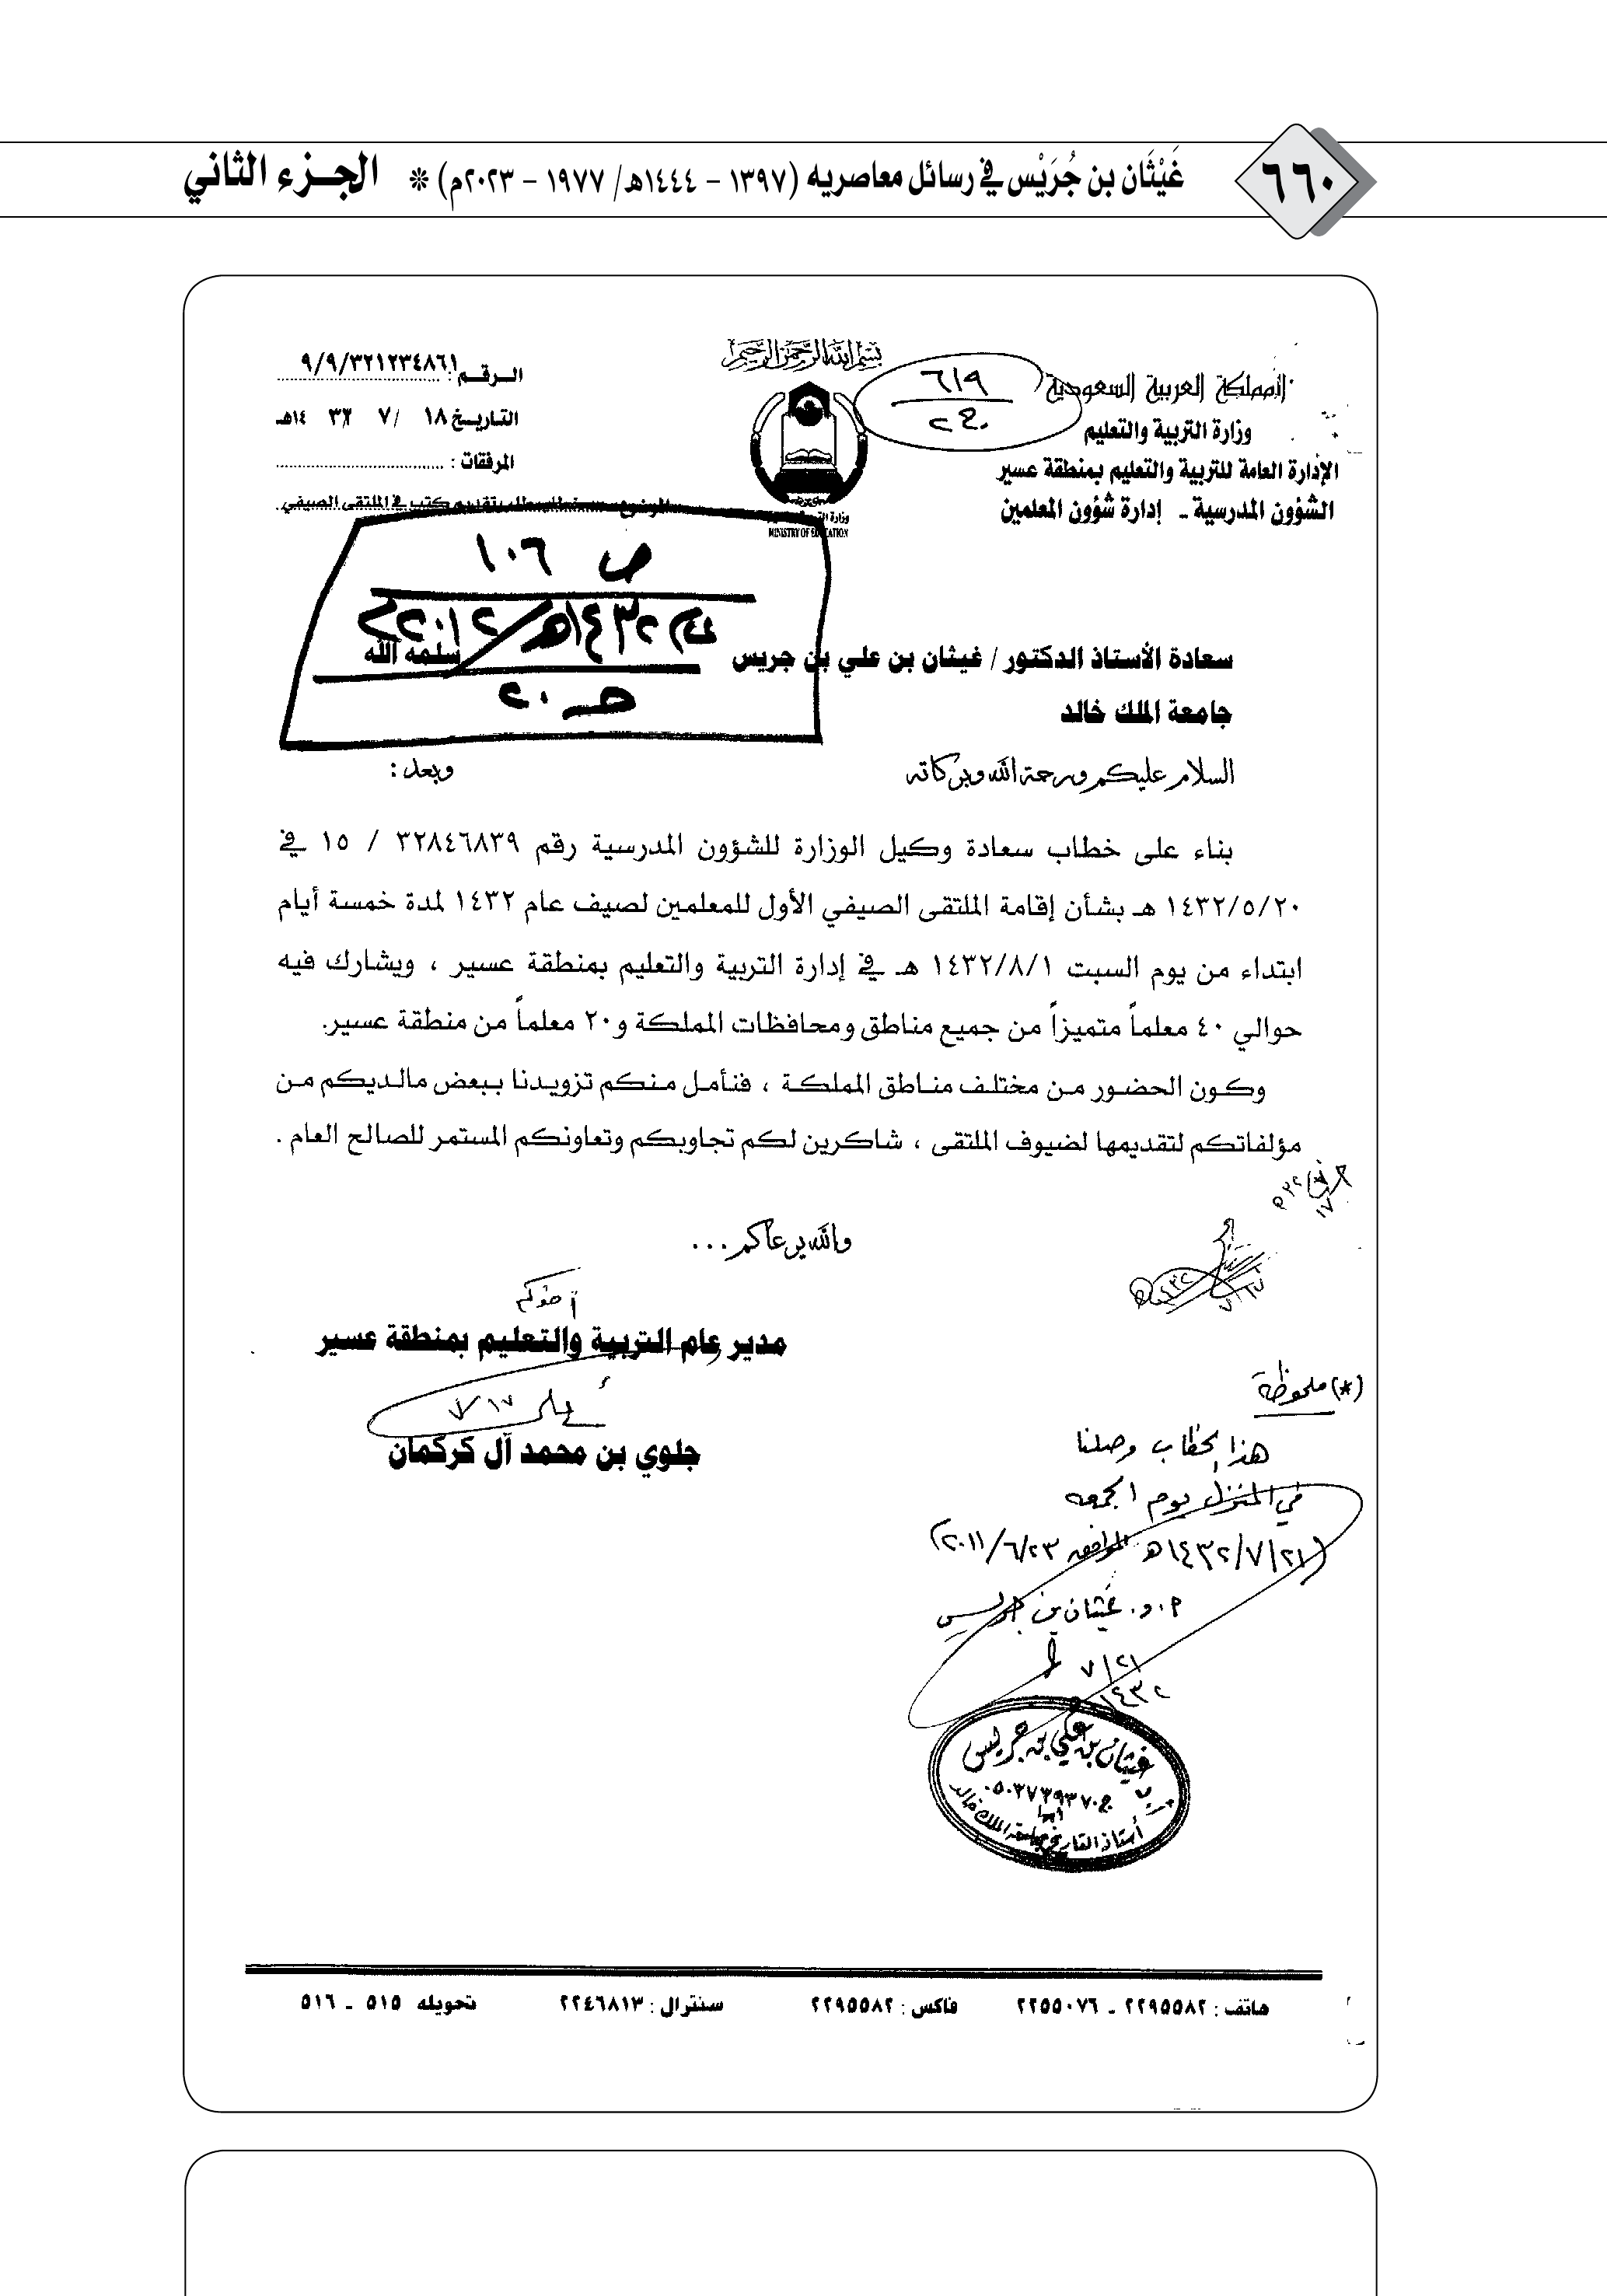 ٦٦٠
غَيْثَان بن جُرَيْس في رسائل معاصريه (١٣٩٧ - ١٤٤٤هـ/ ١٩٧٧ - ٢٠٢٣م) * الجـزء الثاني
بسم الله الرحمن الرحيم
المملكة العربية السعودية
وزارة التربية والتعليم
الإدارة العامة للتربية والتعليم بمنطقة عسير
الشؤون المدرسية - إدارة شؤون المعلمين
٦١٩
ج٢٠
وزارة التربية
MINISTRY OF EDUCATION
الـرقـم : ٩/٩/٣٢١٢٣٤٨٦١
التاريخ ١٨ / ٧ / ٣٢ ١٤هـ
المرفقات :
الموضوع: طلب تقديم كتب في الملتقى الصيفي
ص ١٠٦
١٤٣٢هـ/٢٠١١م
ج٢٠
سعادة الأستاذ الدكتور / غيثان بن علي بن جريس سلمه الله
جامعة الملك خالد
السلام عليكم ورحمة الله وبركاته وبعد :
بناء على خطاب سعادة وكيل الوزارة للشؤون المدرسية رقم ٣٢٨٤٦٨٣٩ / ١٥ في
١٤٣٢/٥/٢٠ هـ بشأن إقامة الملتقى الصيفي الأول للمعلمين لصيف عام ١٤٣٢ لمدة خمسة أيام
ابتداء من يوم السبت ١٤٣٢/٨/١ هـ في إدارة التربية والتعليم بمنطقة عسير ، ويشارك فيه
حوالي ٤٠ معلماً متميزاً من جميع مناطق ومحافظات المملكة و٢٠ معلماً من منطقة عسير.
وكون الحضور من مختلف مناطق المملكة ، فنأمل منكم تزويدنا ببعض مالديكم من
مؤلفاتكم لتقديمها لضيوف الملتقى ، شاكرين لكم تجاوبكم وتعاونكم المستمر للصالح العام .
والله يرعاكم ...
أخوكم
مدير عام التربية والتعليم بمنطقة عسير
جلوي بن محمد آل كركمان
(*) ملحوظة
هذا الخطاب وصلنا
في المنزل يوم الجمعه
(١٤٣٢/٧/٢١هـ الموافق ٢٠١١/٦/٢٣)
أ.د. غيثان بن جريس
٧/٢١
١٤٣٢
غيثان بن علي بن جريس
ج ٠٥٠٣٧٣٩٣٧٠
أبها
أستاذ التاريخ بجامعة الملك خالد
هاتف : ٢٢٩٥٥٨٢ - ٢٢٥٥٠٧٦ فاكس : ٢٢٩٥٥٨٢ سنترال : ٢٢٤٦٨١٣ تحويله ٥١٥ - ٥١٦